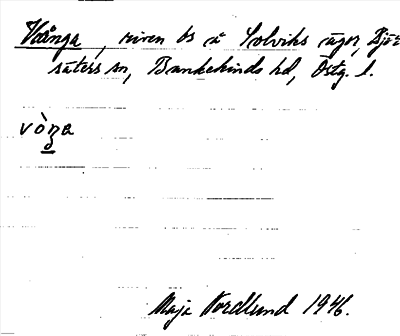 Vånga, riven bs å Solviks ägor, Björ
säters sn, Bankekinds hd, Östg. l.
vòŋa
Maja Nordlund 1946.